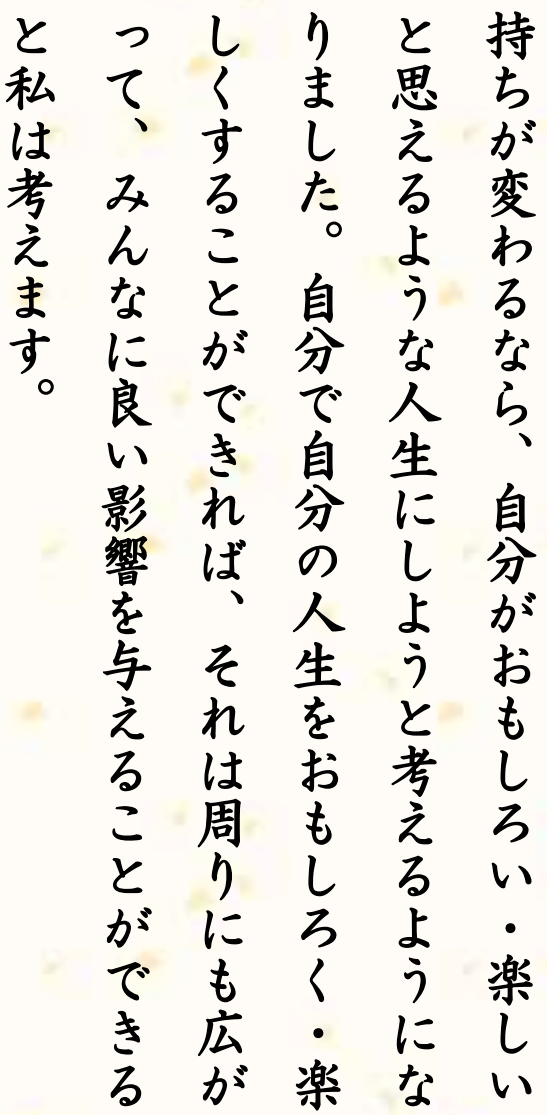 持ちが変わるなら、自分がおもしろい・楽しい
と思えるような人生にしようと考えるようにな
りました。自分で自分の人生をおもしろく・楽
しくすることができれば、それは周りにも広が
って、みんなに良い影響を与えることができる
と私は考えます。